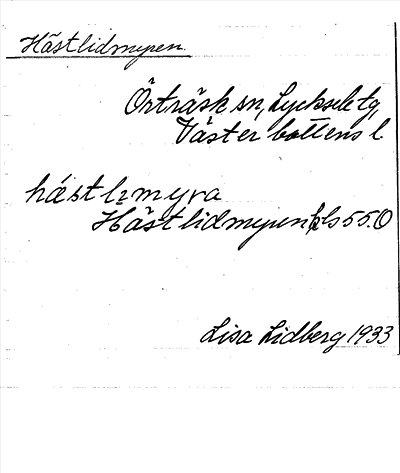 Hästlidmyren
Örträsk sn, Lycksele tg,
Västerbottens l
hä́stlɪmyra
Hästlidmyren kls 55.O
Lisa Lidberg 1933